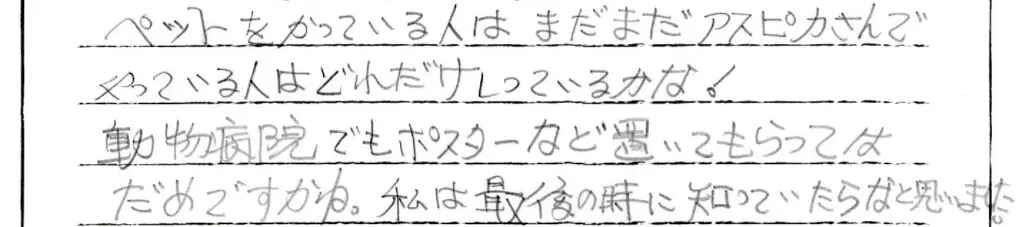 ペットをかっている人はまだまだアスピカさんで
やっている人はどれだけしっているかな!
動物病院でもポスターなど置いてもらっては
だめですかね。私は最後の時に知っていたらなと思いました。